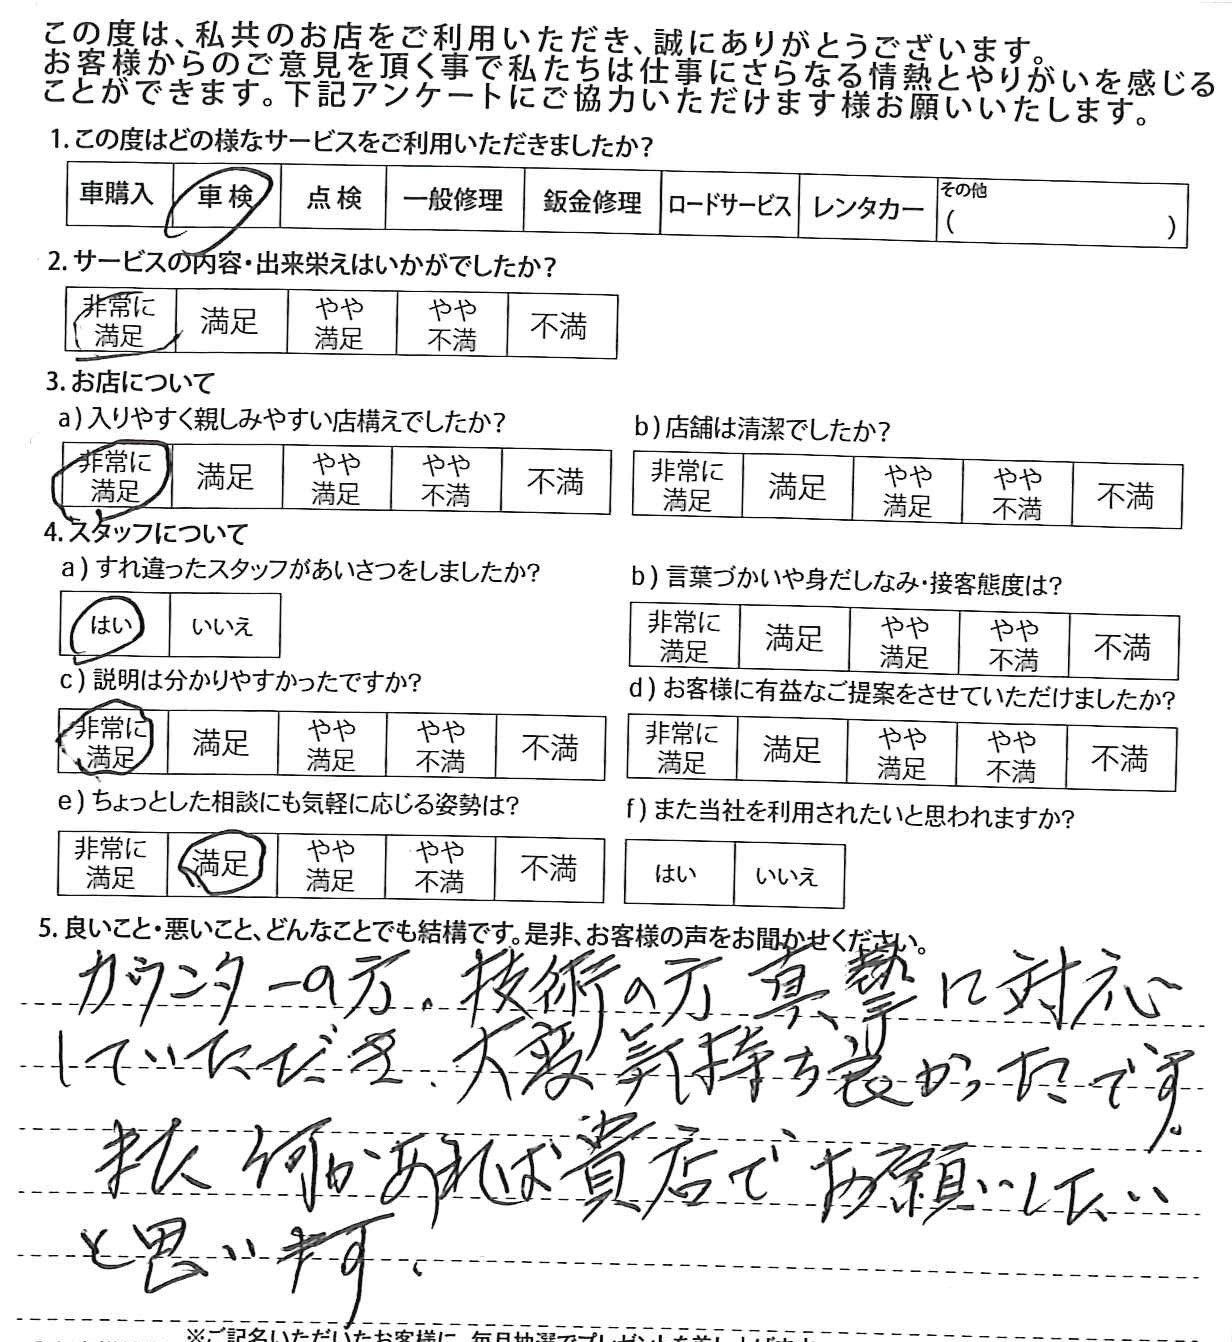 この度は、私共のお店をご利用いただき、誠にありがとうございます。
お客様からのご意見を頂く事で私たちは仕事にさらなる情熱とやりがいを感じる
ことができます。下記アンケートにご協力いただけます様お願いいたします。
1.この度はどの様なサービスをご利用いただきましたか?
車購入 車検 点検 一般修理 鈑金修理 ロードサービス レンタカー その他 ( )
2.サービスの内容・出来栄えはいかがでしたか?
非常に満足 満足 やや満足 やや不満 不満
3.お店について
a)入りやすく親しみやすい店構えでしたか?
非常に満足 満足 やや満足 やや不満 不満
b)店舗は清潔でしたか?
非常に満足 満足 やや満足 やや不満 不満
4.スタッフについて
a)すれ違ったスタッフがあいさつをしましたか?
はい いいえ
b)言葉づかいや身だしなみ・接客態度は?
非常に満足 満足 やや満足 やや不満 不満
c)説明は分かりやすかったですか?
非常に満足 満足 やや満足 やや不満 不満
d)お客様に有益なご提案をさせていただけましたか?
非常に満足 満足 やや満足 やや不満 不満
e)ちょっとした相談にも気軽に応じる姿勢は?
非常に満足 満足 やや満足 やや不満 不満
f)また当社を利用されたいと思われますか?
はい いいえ
5.良いこと・悪いこと、どんなことでも結構です。是非、お客様の声をお聞かせください。
カウンターの方、技術の方 真摯に対応
していただき、大変気持ち良かったです。
また何かあれば貴店でお願いしたい
と思います、
※ご記名いただいたお客様に、毎月抽選でプレゼントを差し上げます